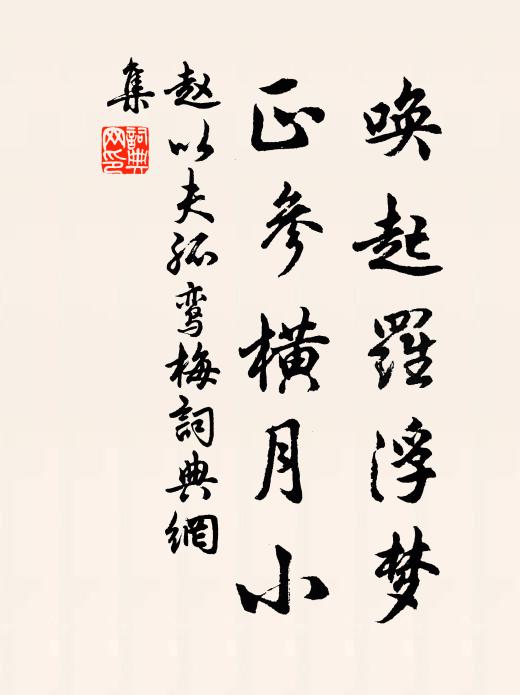 唤起羅浮梦
正參横月小
赵以夫孤鸾梅詞典網
集
詞典
网印